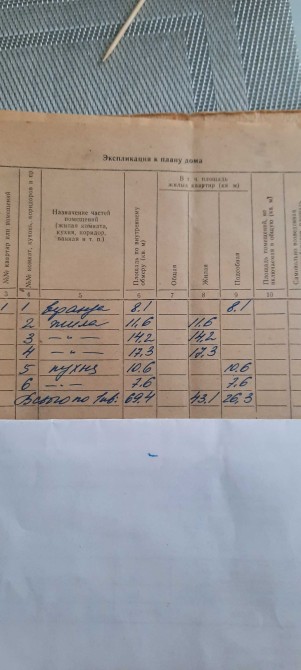 Экспликация к плану дома
№№ квартир или помещений
№№ комнат, кухонь, коридоров и пр
Название частей
помещений
(жилая комната,
кухня, коридор,
ванная и т. п.)
Площадь по внутреннему
обмеру (кв. м)
В т. ч. площадь
жилых квартир (кв. м)
Общая
Жилая
Подсобная
Площадь помещений, не
включаемая в общую (кв. м)
Самовольно
3 4 5 6 7 8 9 10
1 1 веранда 8.1 8.1
2 жила 11,6 11,6
3 —〃— 14,2 14,2
4 —〃— 17,3 17,3
5 кухня 10,6 10,6
6 —〃— 7.6 7.6
Всього по 1 кв: 69.4 43.1 26,3